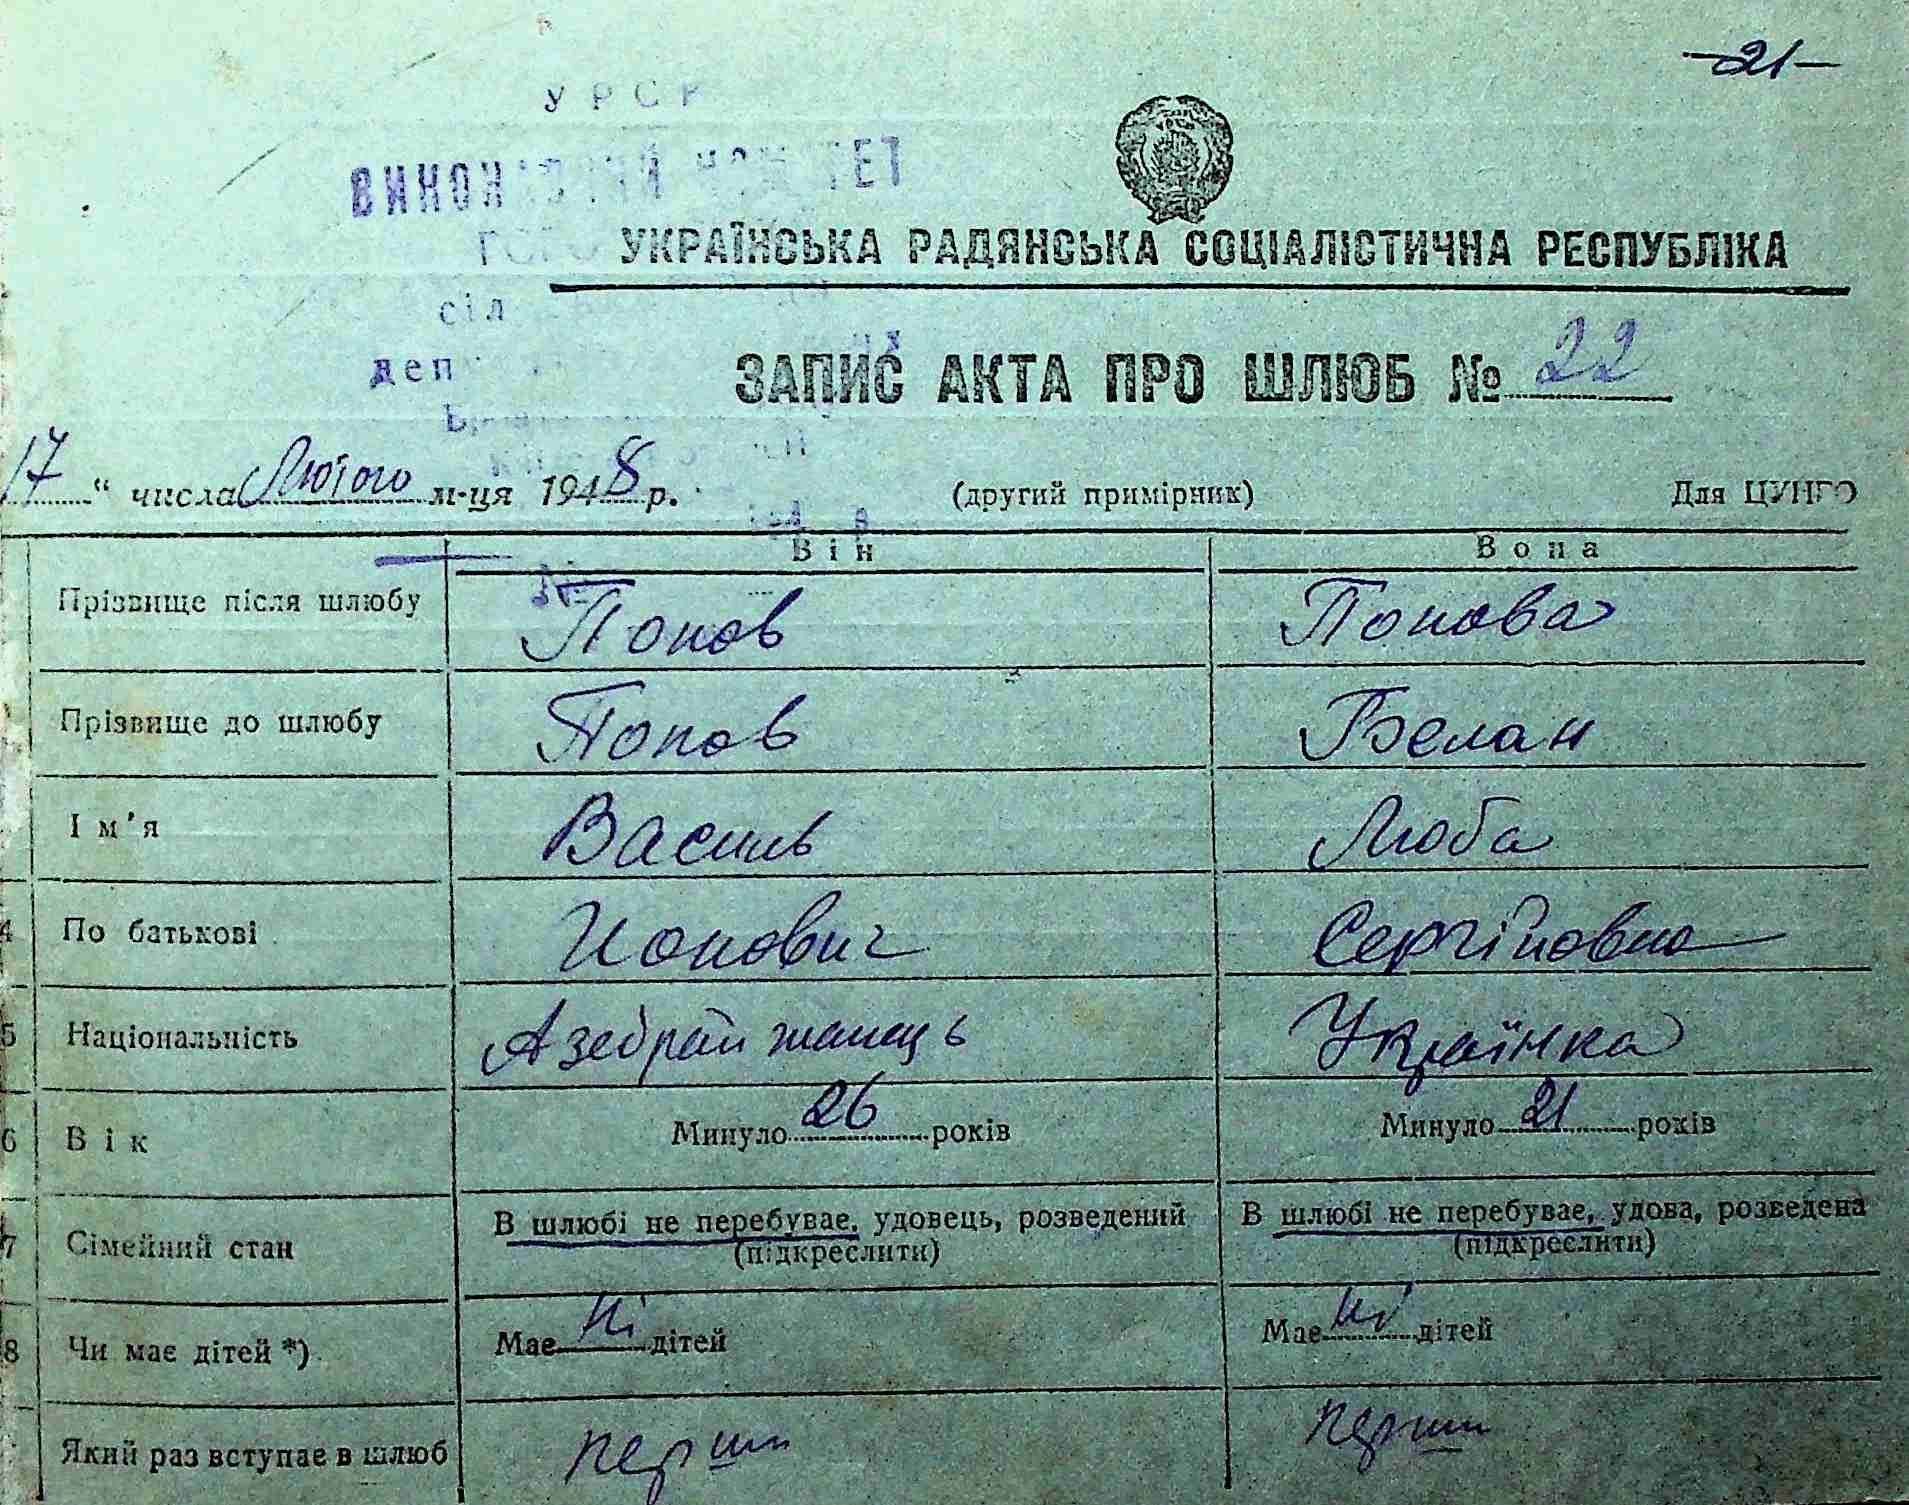 -21-
УРСР
ВИКОНАВЧИЙ КОМІТЕТ
УКРАЇНСЬКА РАДЯНСЬКА СОЦІАЛІСТИЧНА РЕСПУБЛІКА
сіл
деп
ЗАПИС АКТА ПРО ШЛЮБ № 22
17 " числа Лютого м-ця 1948 р. (другий примірник) Для ЦУНГО
Він Вона
Прізвище після шлюбу Попов Попова
Прізвище до шлюбу Попов Белан
Ім'я Василь Люба
4 По батькові Іонович Сергіївна
5 Національність Азебрайжанець Українка
6 Вік Минуло 26 років Минуло 21 років
7 Сімейний стан В шлюбі не перебуває, удовець, розведений В шлюбі не перебуває, удова, розведена
(підкреслити) (підкреслити)
8 Чи має дітей *) Має ні дітей Має ні дітей
Який раз вступає в шлюб перший перший